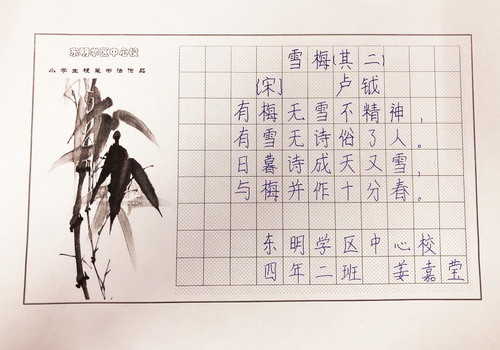 东明学区中心校
小学生硬笔书法作品
雪梅(其二)
[宋] 卢钺
有梅无雪不精神，
有雪无诗俗了人。
日暮诗成天又雪，
与梅并作十分春。
东明学区中心校
四年二班 姜嘉莹